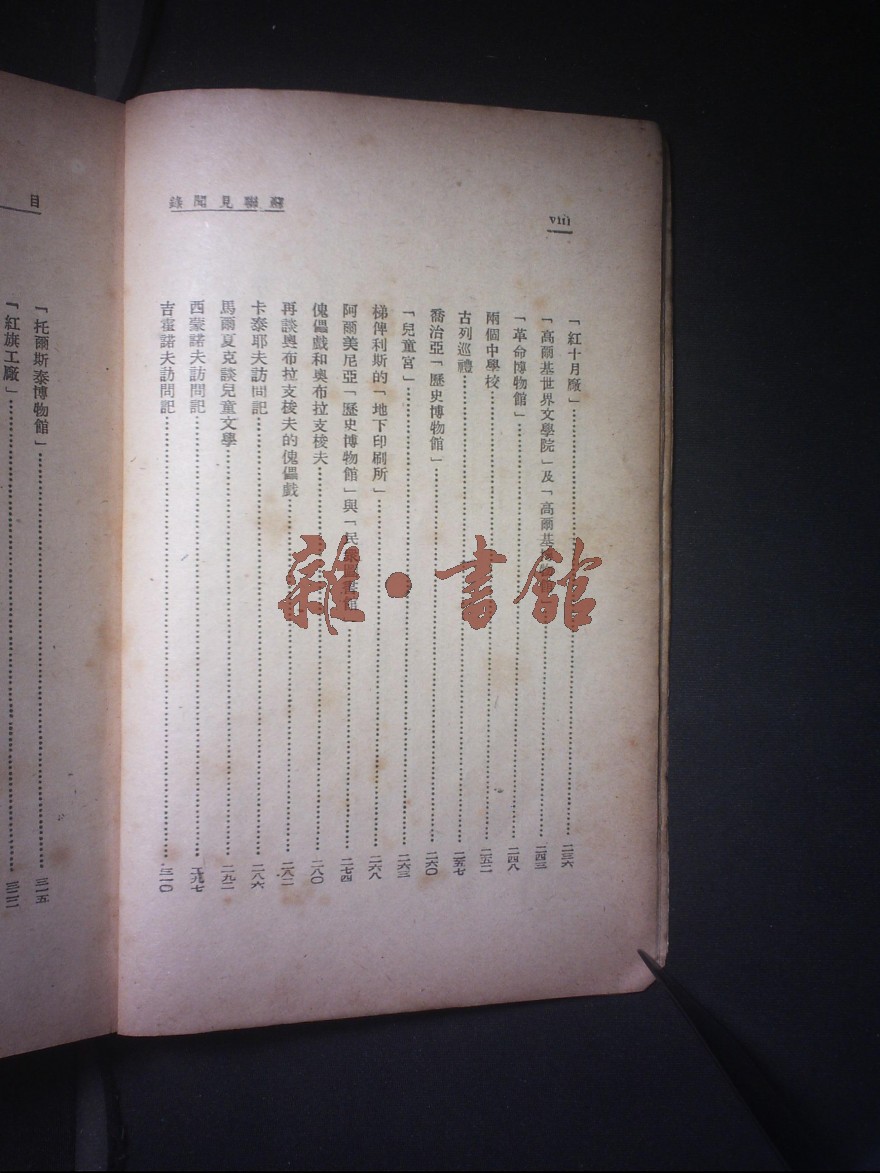 viii
蘇聯見聞錄
「紅十月廠」……二三六
「高爾基世界文學院」及「高爾基博物……二四三
「革命博物館」……二四八
兩個中學校……二五二
古列巡禮……二五七
喬治亞「歷史博物館」……二六〇
「兒童宮」……二六三
梯俾利斯的「地下印刷所」……二六八
阿爾美尼亞「歷史博物館」與「民……二七四
傀儡戲和奧布拉支梭夫……二八〇
再談奧布拉支梭夫的傀儡戲……二八二
卡泰耶夫訪問記……二八六
馬爾夏克談兒童文學……二九二
西蒙諾夫訪問記……二九七
吉霍諾夫訪問記……三一〇
目
「托爾斯泰博物館」……三一五
「紅旗工廠」……三二二
雜·書館